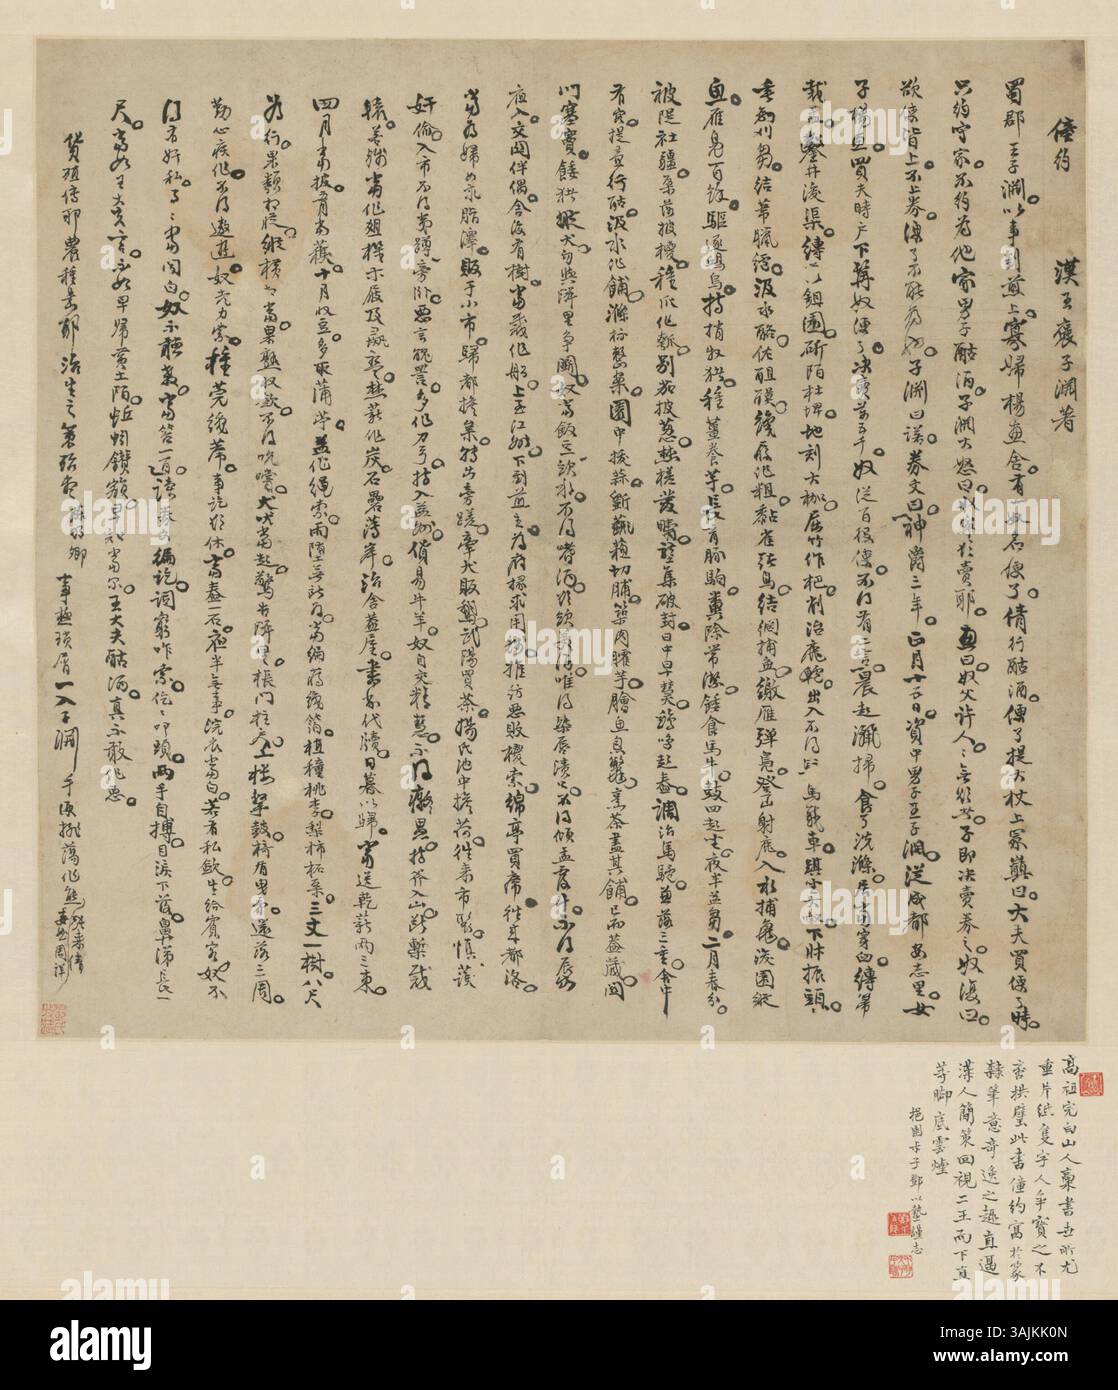 僮約 漢王褒子淵著
蜀郡王子淵以事到煎上寡婦楊惠舍有一奴名便了倩行酤酒便了提大杖上冢巔曰大夫買便了時
只約守家不約為他家男子酤酒子淵大怒曰奴寧欲賣耶惠曰奴父許人人無欲者子即决賣券之奴復曰
欲使皆上不上券便了不能為也子淵曰諾券文曰神爵三年正月十五日資中男子王子淵從成都安志里女
子楊惠買夫時户下髯奴便了决賣萬五千奴從百役使不得有二言晨起灑掃食了洗滌居當穿臼縛帚
裁盂鑿井浚渠縛落鉏園斫陌杜埤地刻大枷屈竹作杷削治鹿轤出入不得騎馬載車踑坐大呶下牀振頭
垂鉤刈芻結葦臘纑汲水酪佐䣯醾織履作粗黏雀張烏結網捕魚繳雁彈鳧登山射鹿入水捕龜後園縱
魚雁鳧百餘驅逐鴟鳥持梢牧猪種薑養芋長育豚駒糞除常潔餧食馬牛鼓四起坐夜半益芻二月春分
被隄杜疆桑落披㯶種瓜作瓠別茄披葱焚槎發疇壟集破封日中早熭雞鳴起舂調治馬驢兼落三重舍中
有客提壺行酤汲水作餔滌杯整案園中拔蒜斫蘇切脯築肉臛芋膾魚炰鼈烹茶盡具餔已而蓋藏關
門塞竇餧猪縱犬勿與隣里爭鬭奴當飯豆飲水不得嗜酒欲飲美酒唯得染唇漬口不得傾盂覆斗不得辰出
夜入交關伴偶舍後有樹當裁作船上至江州下到煎主為府掾求用錢推訪惡敗㯶索綿亭買席往來都洛
當為婦女求脂澤販于小市歸都擔枲轉出旁蹉牽犬販鵝武陽買茶楊氏池中擔荷往來市聚慎護
奸偷入市不得夷蹲旁卧惡言醜罵多作刀弓持入益州貨易牛羊奴自交精慧不得癡愚持斧入山斷槧裁
轅若殘當作俎機木屐及彘盤焚薪作炭石礨薄岸治舍蓋屋書削代牘日暮以歸當送乾薪兩三束
四月當披五月當穫十月收豆多取蒲苧益作繩索雨墮無所為當編蔣織箔植種桃李梨柿柘桑三丈一樹八尺
為行果類相從縱橫相當果熟收斂不得吮嘗犬吠當起驚告隣里棖門柱户上樓擊鼓椅盾曳矛還落三周
勤心疾作不得遨遊奴老力索種莞織席事訖欲休當舂一石夜半無事浣衣當白若有私歛主給賓客奴不
得有奸私事事當關白奴不聽教當笞一百讀券文徧訖詞窮咋索仡仡叩頭兩手自搏目淚下落鼻涕長一
尺當如王大夫言不如早歸黄土陌蚯蚓鑽額早知當尔王大夫酤酒真不敢作惡
貨殖傳耶農種書耶治生之策 事極瑣屑一入子淵手便掀蕩作態
高祖完白山人藁書世所尤
重片紙隻字人爭寶之不
啻拱璧此書僮約寓於篆
隸筆意奇逸之趣直逼
漢人簡策回視二王而下直
等脚底雲煙
鄧以蟄謹志
alamy
Image ID: 3AJKK0N
www.alamy.com